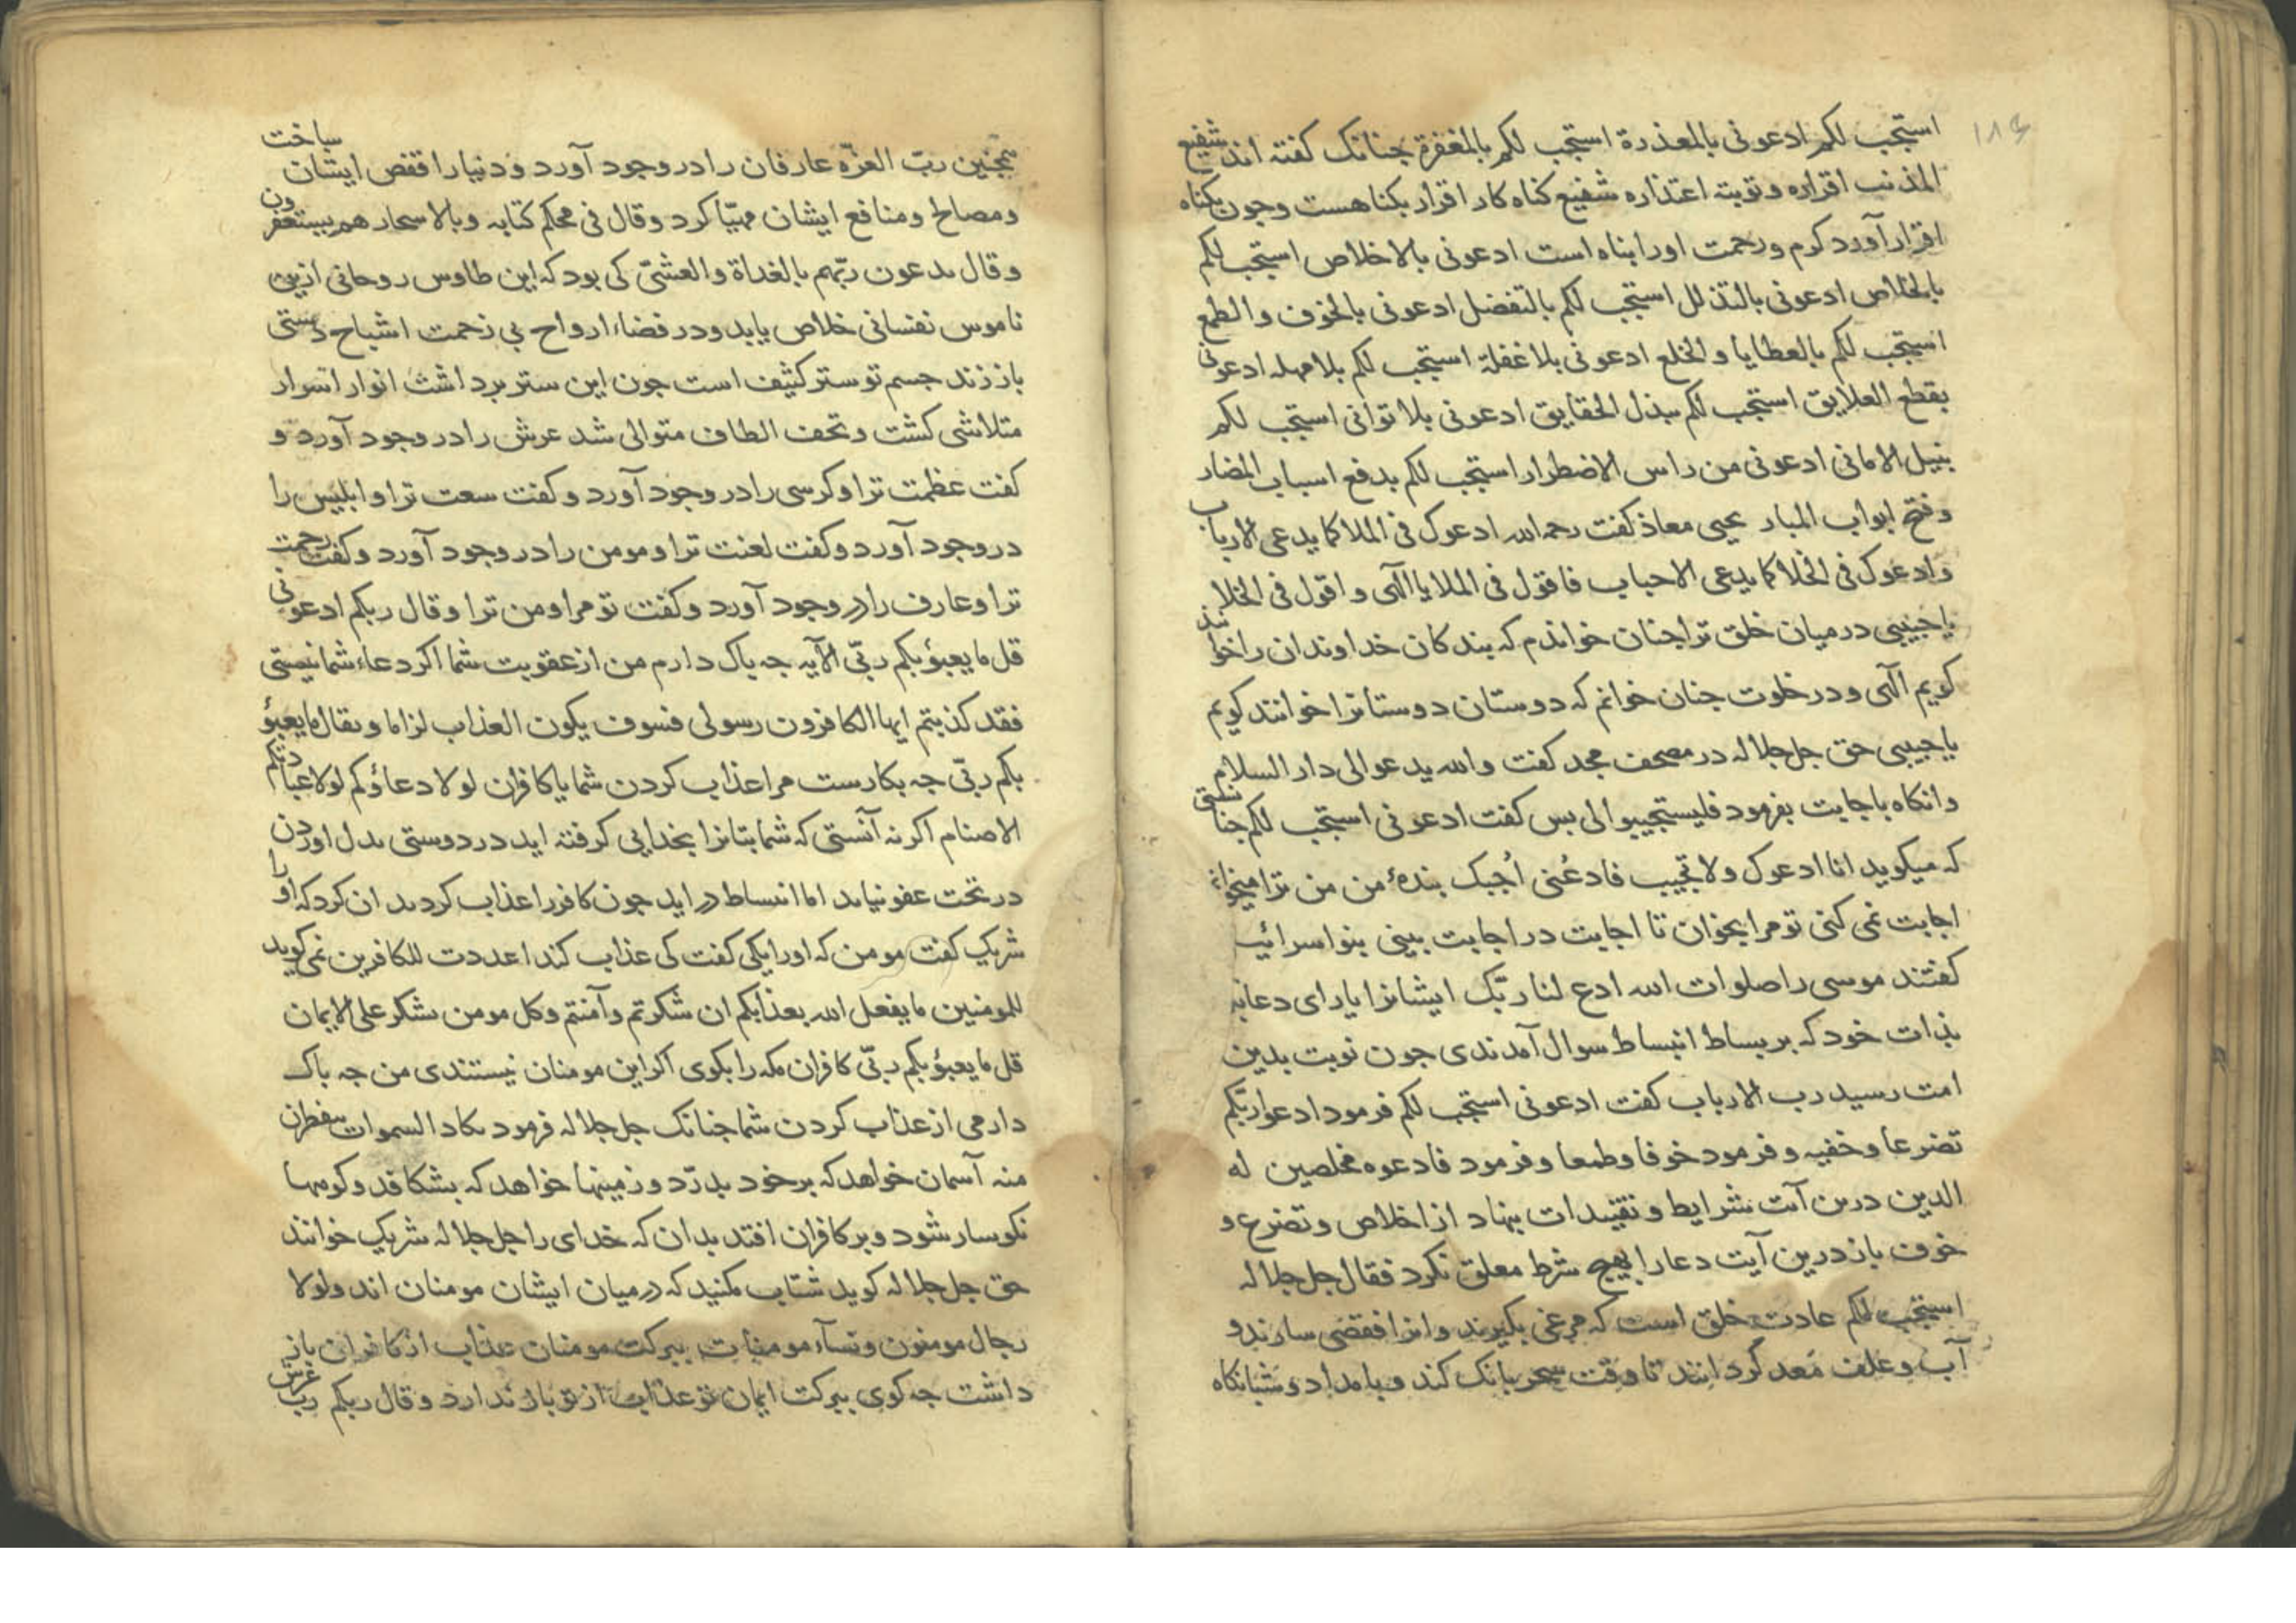 ۱۸۶
استجب لکم ادعونی بالمعذرة استجب لکم بالمغفرة جنانک کفته اند شفیع
المذنب اقراره و توبته اعتذاره شفیع کناه کار اقرار بکناهست وجون بکناه
اقرار آورد کرم و رحمت اورا بناه است ادعونی بالاخلاص استجب لکم
بالخلاص ادعونی بالتذلل استجب لکم بالتفضل ادعونی بالخوف والطمع
استجب لکم بالعطایا والخلع ادعونی بلا غفلة استجب لکم بلا مهله ادعونی
بقطع العلایق استجب لکم ببذل الحقایق ادعونی بلا توانی استجب لکم
بنیل الامانی ادعونی من راس الاضطرار استجب لکم بدفع اسباب المضار
وفتح ابواب المبار یحیی معاذ کفت رحمه الله ادعوک فی الملا کما یدعی الارباب
وادعوک فی الخلا کما یدعی الاحباب فاقول فی الملا یا الهی واقول فی الخلا
یا حبیبی درمیان خلق ترا جنان خواندم که بندکان خداوندان را خوانند
کویم الهی و در خلوت جنان خوانم که دوستان دوستانرا خوانند کویم
یا حبیبی حق جل جلاله در مصحف مجد کفت والله یدعو الی دار السلام
وانکاه باجابت بفرمود فلیستجیبوا لی بس کفت ادعونی استجب لکم جنانستی
که میکوید انا ادعوک ولا تجیب فادعنی اُجبک بندهٔ من من ترا میخوانم
اجابت نمی کنی تو مرا بخوان تا اجابت در اجابت بینی بنو اسرائیل
کفتند موسی را صلوات الله ادع لنا ربّک ایشانرا یارای دعا نه
بذات خود که بر بساط انبساط سوال آمدندی جون نوبت بدین
امت رسید رب الارباب کفت ادعونی استجب لکم فرمود ادعوا ربّکم
تضرعا وخفیه و فرمود خوفا وطمعا و فرمود فادعوه مخلصین له
الدین درین آیت شرایط و تقییدات بنهاد از اخلاص و تضرع و
خوف باز درین آیت دعا را بهیج شرط معلق نکرد فقال جل جلاله
استجب لکم عادت خلق است که مرغی بکیرند وانرا قفصی سازند و
آب وعلف مُعد کردانند تا وقت سحر بانک کند و بامداد و شبانکاه
همجنین ربّ العزّه عارفان را در وجود آورد و دنیا را قفص ایشان ساخت
و مصالح و منافع ایشان مهیّا کرد وقال فی محکم کتابه وبالاسحار هم یستغفرون
وقال یدعون ربّهم بالغداة والعشیّ کی بود که این طاوس روحانی ازین
ناموس نفسانی خلاص یابد و در فضاء ارواح بی زحمت اشباح دستی
باز زند جسم تو ستر کثیف است جون این ستر برداشت انوار اسرار
متلاشی کشت و تحف الطاف متوالی شد عرش را در وجود آورد و
کفت عظمت ترا و کرسی را در وجود آورد و کفت سعت ترا و ابلیس را
در وجود آورد و کفت لعنت ترا و مومن را در وجود آورد و کفت رحمت
ترا و عارف را در وجود آورد و کفت تو مرا و من ترا وقال ربکم ادعونی
قل ما یعبؤ بکم ربّی الآیه جه باک دارم من از عقوبت شما اکر دعاء شما نیستی
فقد کذبتم ایها الکافرون رسولی فسوف یکون العذاب لزاما ویقال ما یعبؤ
بکم ربّی جه بکارست مرا عذاب کردن شما یا کافران لولا دعاؤکم لولا عبادتکم
الاصنام اکر نه آنستی که شما بتانرا بخدایی کرفته اید در دوستی بدل اوردن
در تحت عفو نیاید اما انبساط در اید جون کافر را عذاب کردبد ان کرد که او را
شریک کفت مومن که اورا یکی کفت کی عذاب کند اعددت للکافرین نمی کوید
للمومنین ما یفعل الله بعذابکم ان شکرتم وآمنتم وکل مومن یشکر علی الایمان
قل ما یعبؤ بکم ربّی کافران مکه را بکوی اکر این مومنان نیستندی من جه باک
دارمی از عذاب کردن شما جنانک جل جلاله فرمود یکاد السموات یتفطرن
منه آسمان خواهد که بر خود بدرّد و زمینها خواهد که بشکافد و کوهها
نکوسار شود و بر کافران افتد بدان که خدای را جل جلاله شریک خوانند
حق جل جلاله کوید شتاب مکنید که درمیان ایشان مومنان اند ولولا
رجال مومنون ونسآء مومنات ببرکت مومنان عذاب از کافران باز
داشت جه کوی ببرکت ایمان تو عذاب از تو باز ندارد وقال ربکم ربّ عرش